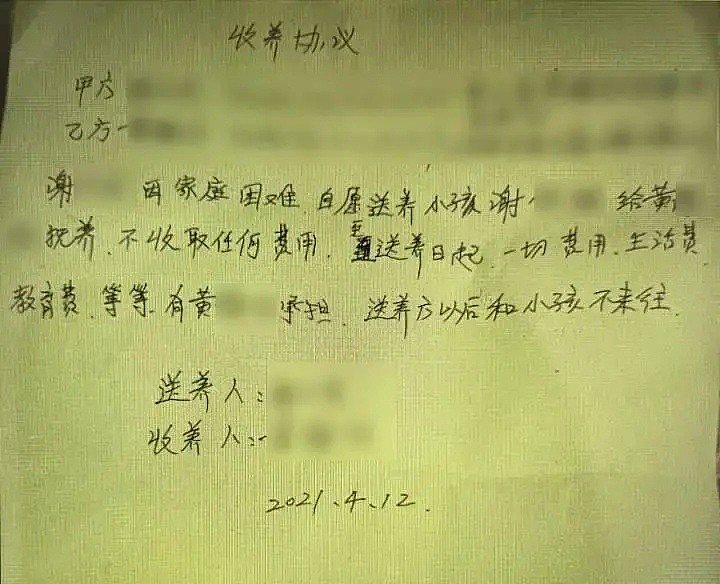 收养协议
甲方
乙方
谢 因家庭困难.自愿送养小孩谢 给黄
抚养.不收取任何费用. 送养日起.一切费用.生活费
教育费.等等.有黄 承担.送养方以后和小孩不来往.
送养人:
收养人:
2021.4.12.